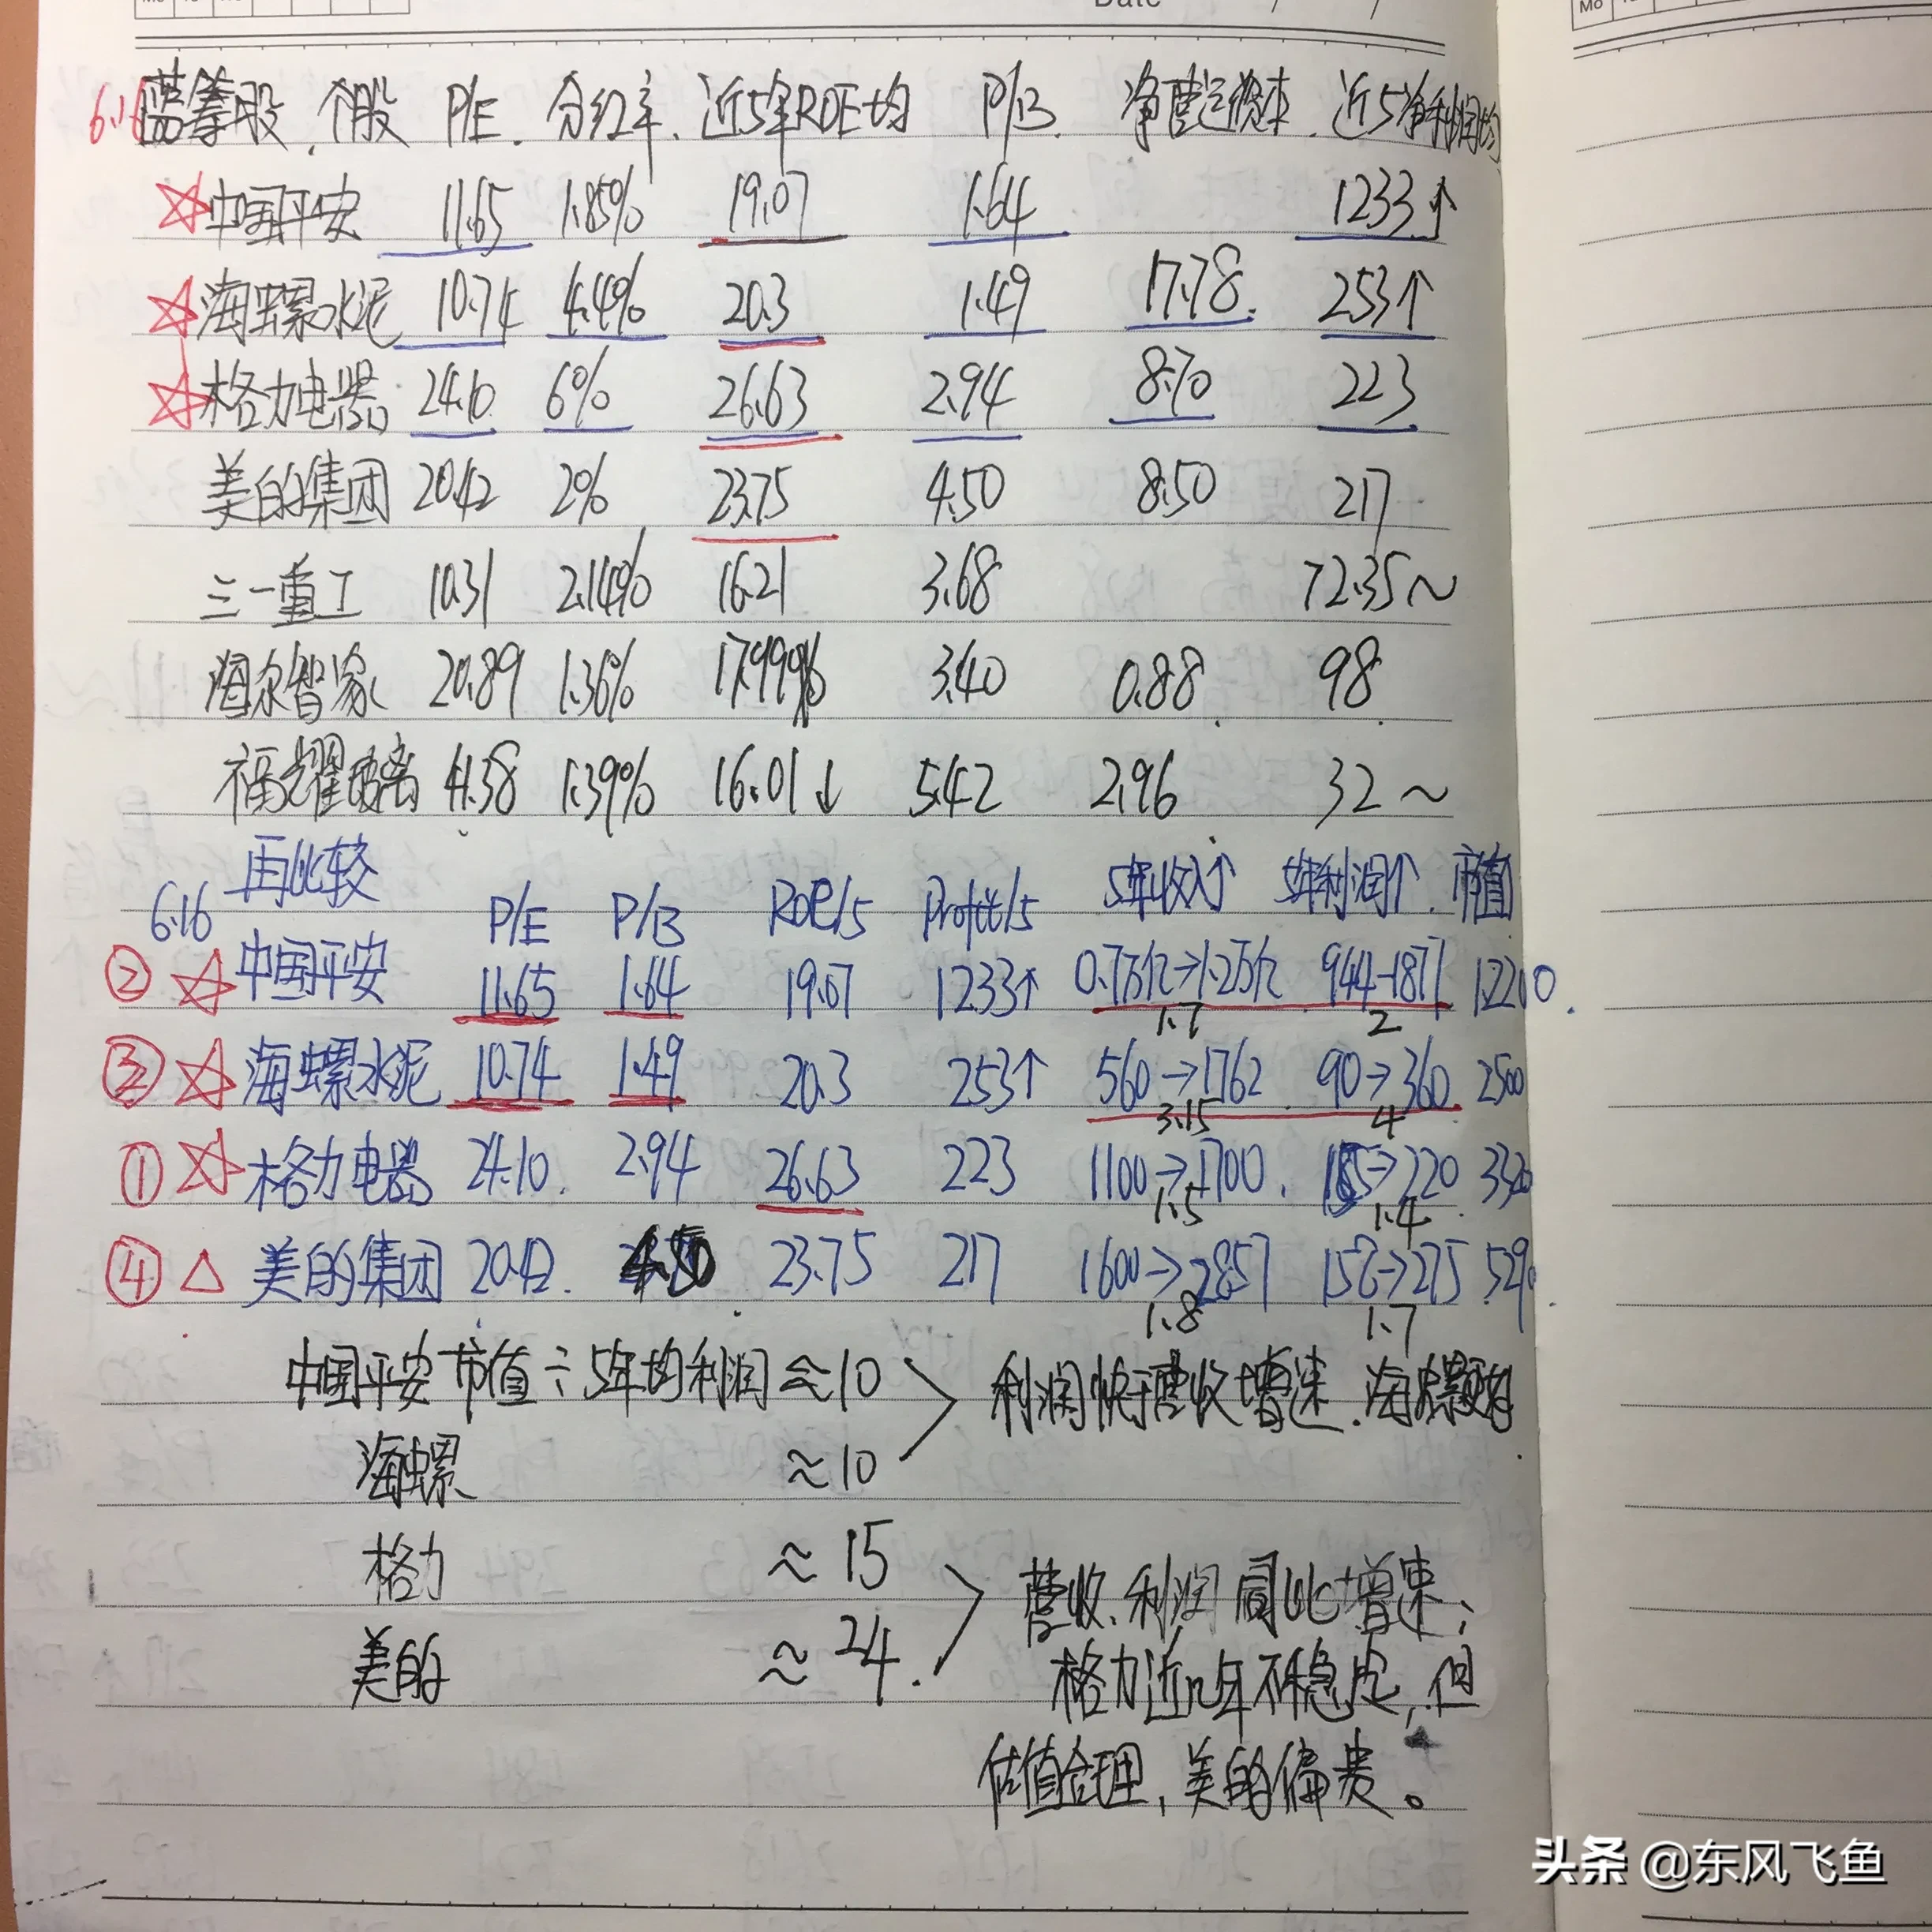 Date / /
Mo
6.16 蓝筹股、个股 P/E 分红率 近5年ROE均 P/B 净营运资本 近5净利润均
中国平安 11.65 1.85% 19.07 1.64 1233↑
海螺水泥 10.74 4.4% 20.3 1.49 17.78 253↑
格力电器 24.10 6% 26.63 2.94 8.70 223
美的集团 20.42 2% 23.75 4.50 8.50 217
三一重工 10.31 2.14% 16.21 3.68 72.35~
海尔智家 20.89 1.36% 17.99% 3.40 0.88 98
福耀玻璃 41.38 1.39% 16.01↓ 5.42 2.96 32~
再比较
6.16 P/E P/B ROE/5 Profit/5 5年收入↑ 5年利润↑ 市值
② 中国平安 11.65 1.64 19.07 1233↑ 0.7万亿→1.2万亿 944→1877
1.7 2
③ 海螺水泥 10.74 1.49 20.3 253↑ 560→1762 90→360 2500
3.15 4
① 格力电器 24.10 2.94 26.63 223 1100→1700 →220
1.5 1.4
④ △ 美的集团 20.42 4.50 23.75 217 1600→2857 158→275
1.8 1.7
中国平安市值÷5年均利润≈10 利润快于营收增速
海螺 ≈10
格力 ≈15
营收、利润同比增速;
美的 ≈24
格力近几年不稳定,但
估值合理,美的偏贵。
头条 @东风飞鱼